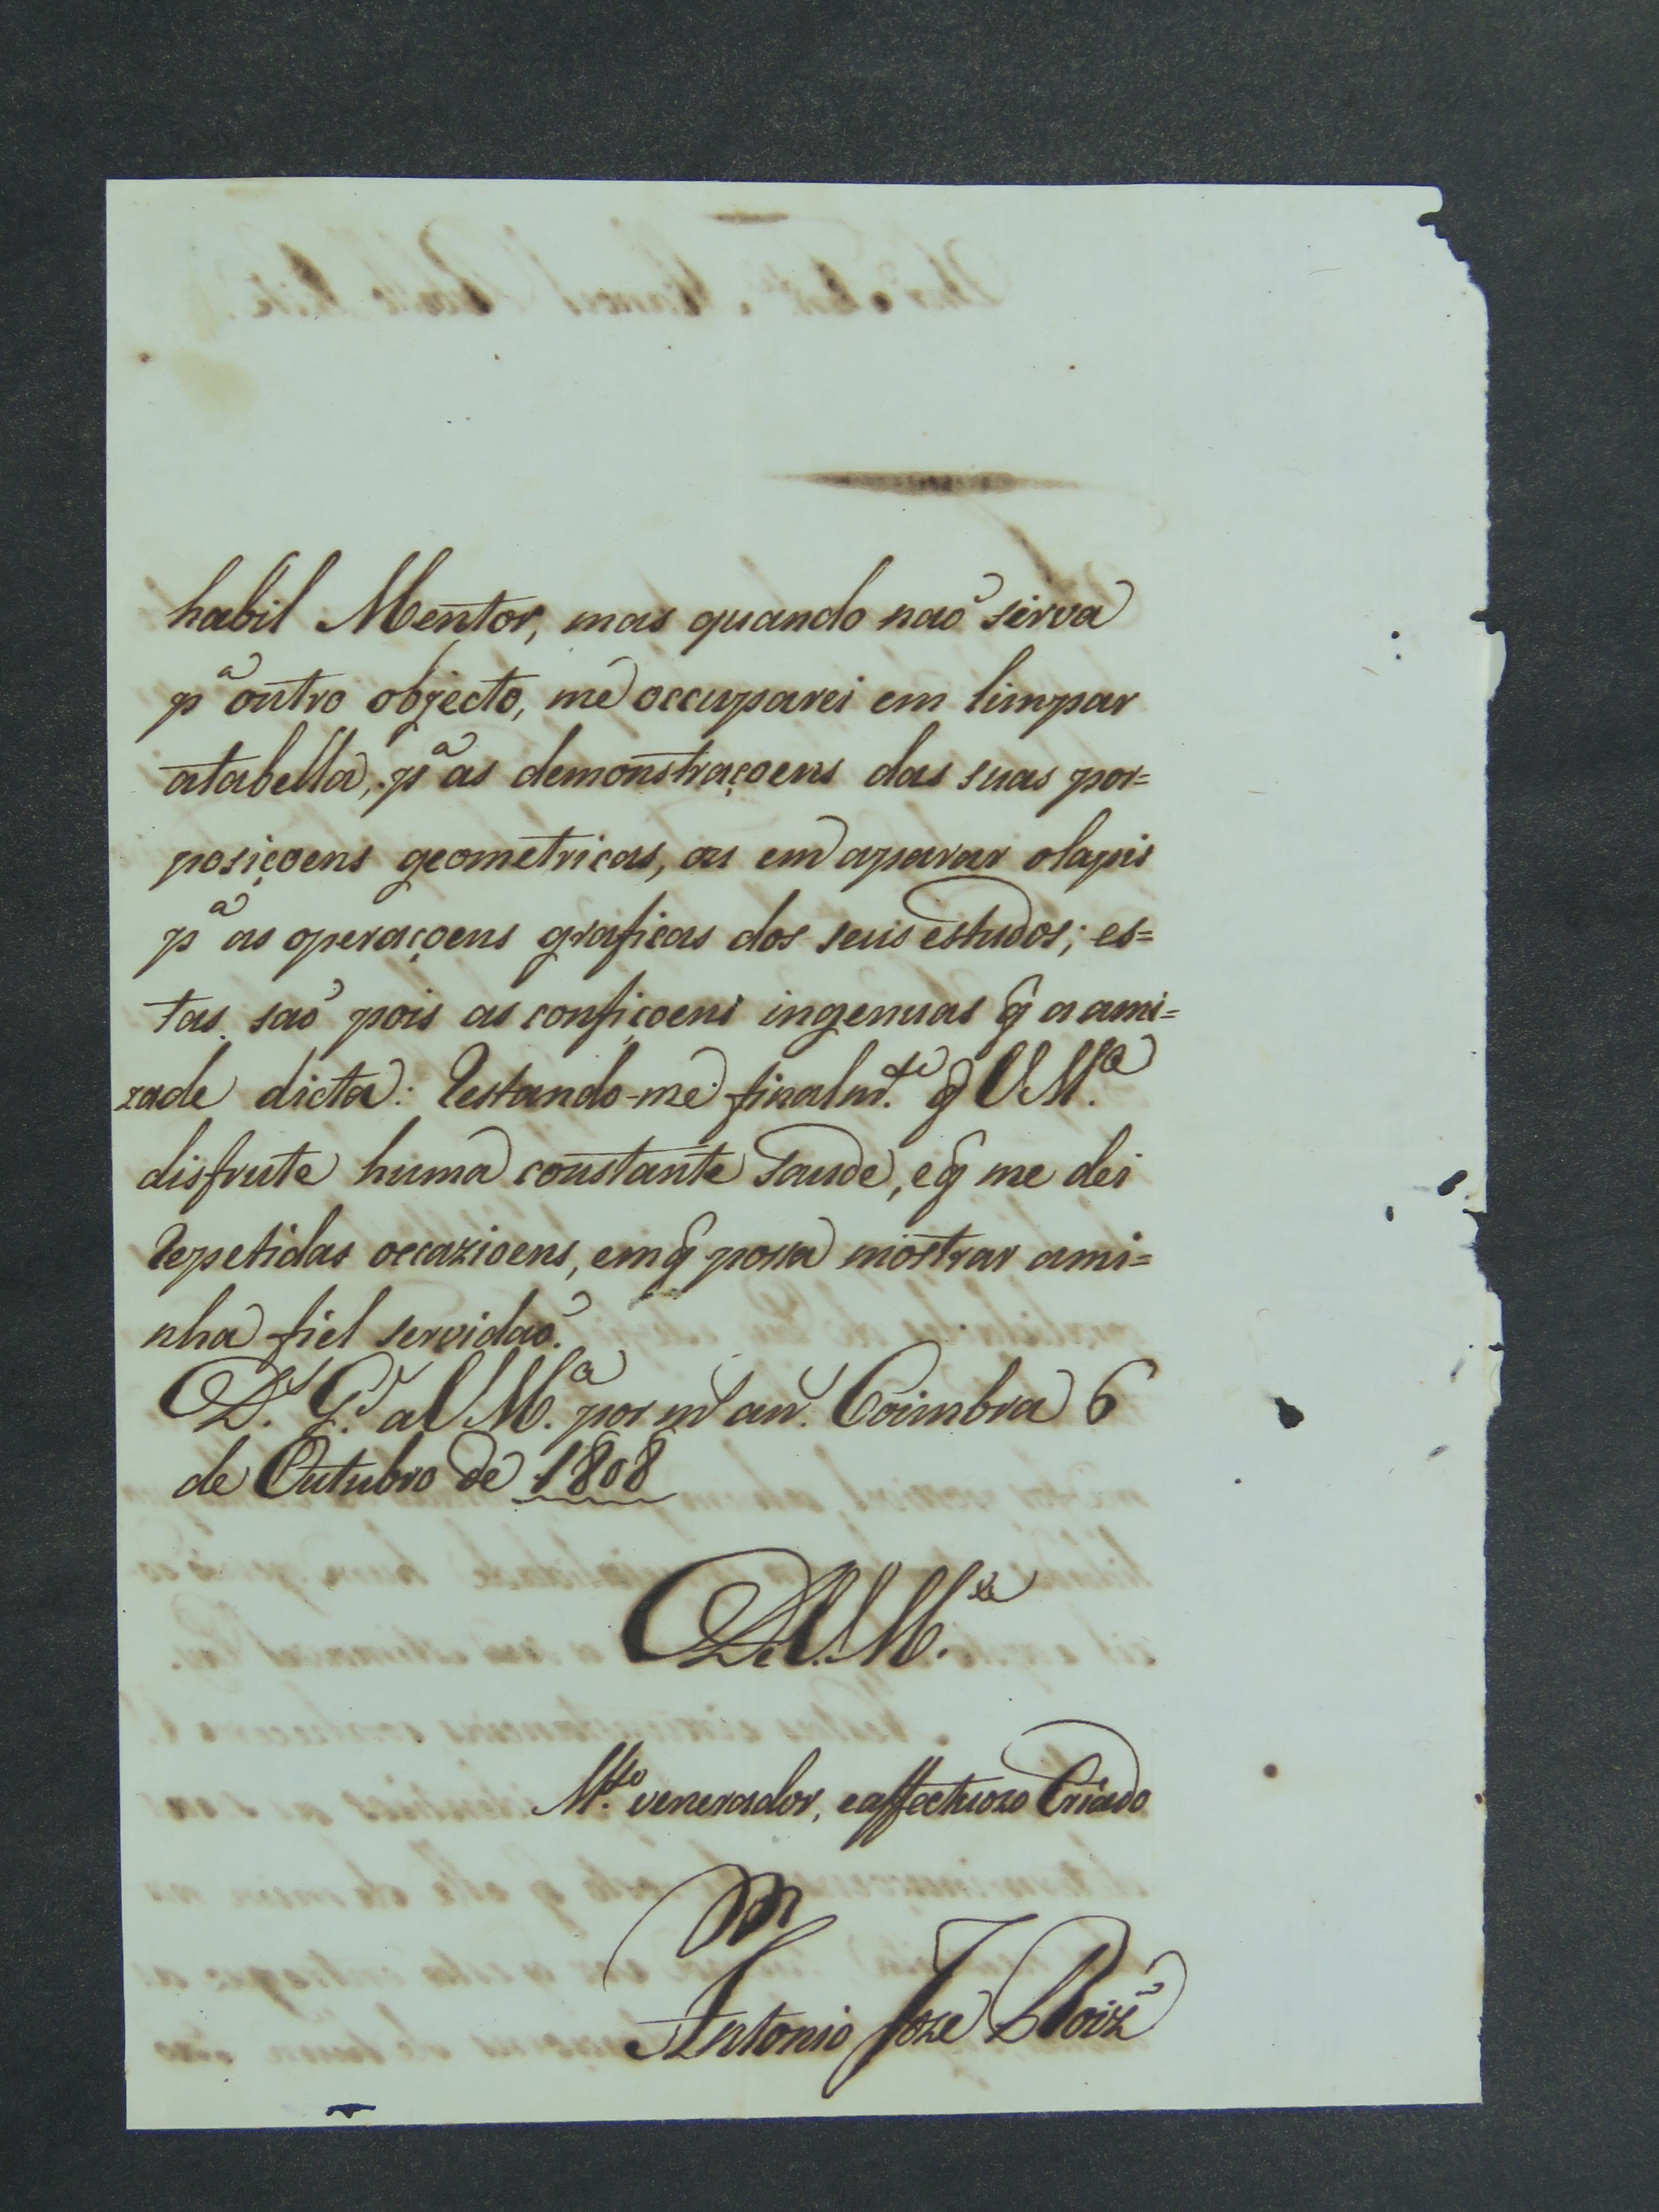 habil Mentor, mas quando naõ sirva
pª outro objecto, me occuparei em limpar
atabella, pª as demonstraçoens das suas por=
posiçoens geometricas, ou em aparar olapis
pª as operaçoens graficas dos seus estudos; es=
tas saõ pois as confiçoens ingenuas q̃ a ami=
zade dicta: Restando-me finalm.te q̃ VM.ce
disfrute huma constante saude, eq̃ me dei
Repetidas occazioens, emq̃ possa mostrar ami=
nha fiel servidaõ.
D.s G.de a VM.ce por m.s an.s Coimbra 6
de Outubro de 1808
De VM.ce
M.to venerador, eaffectuozo Criado
Antonio Joze Roiz